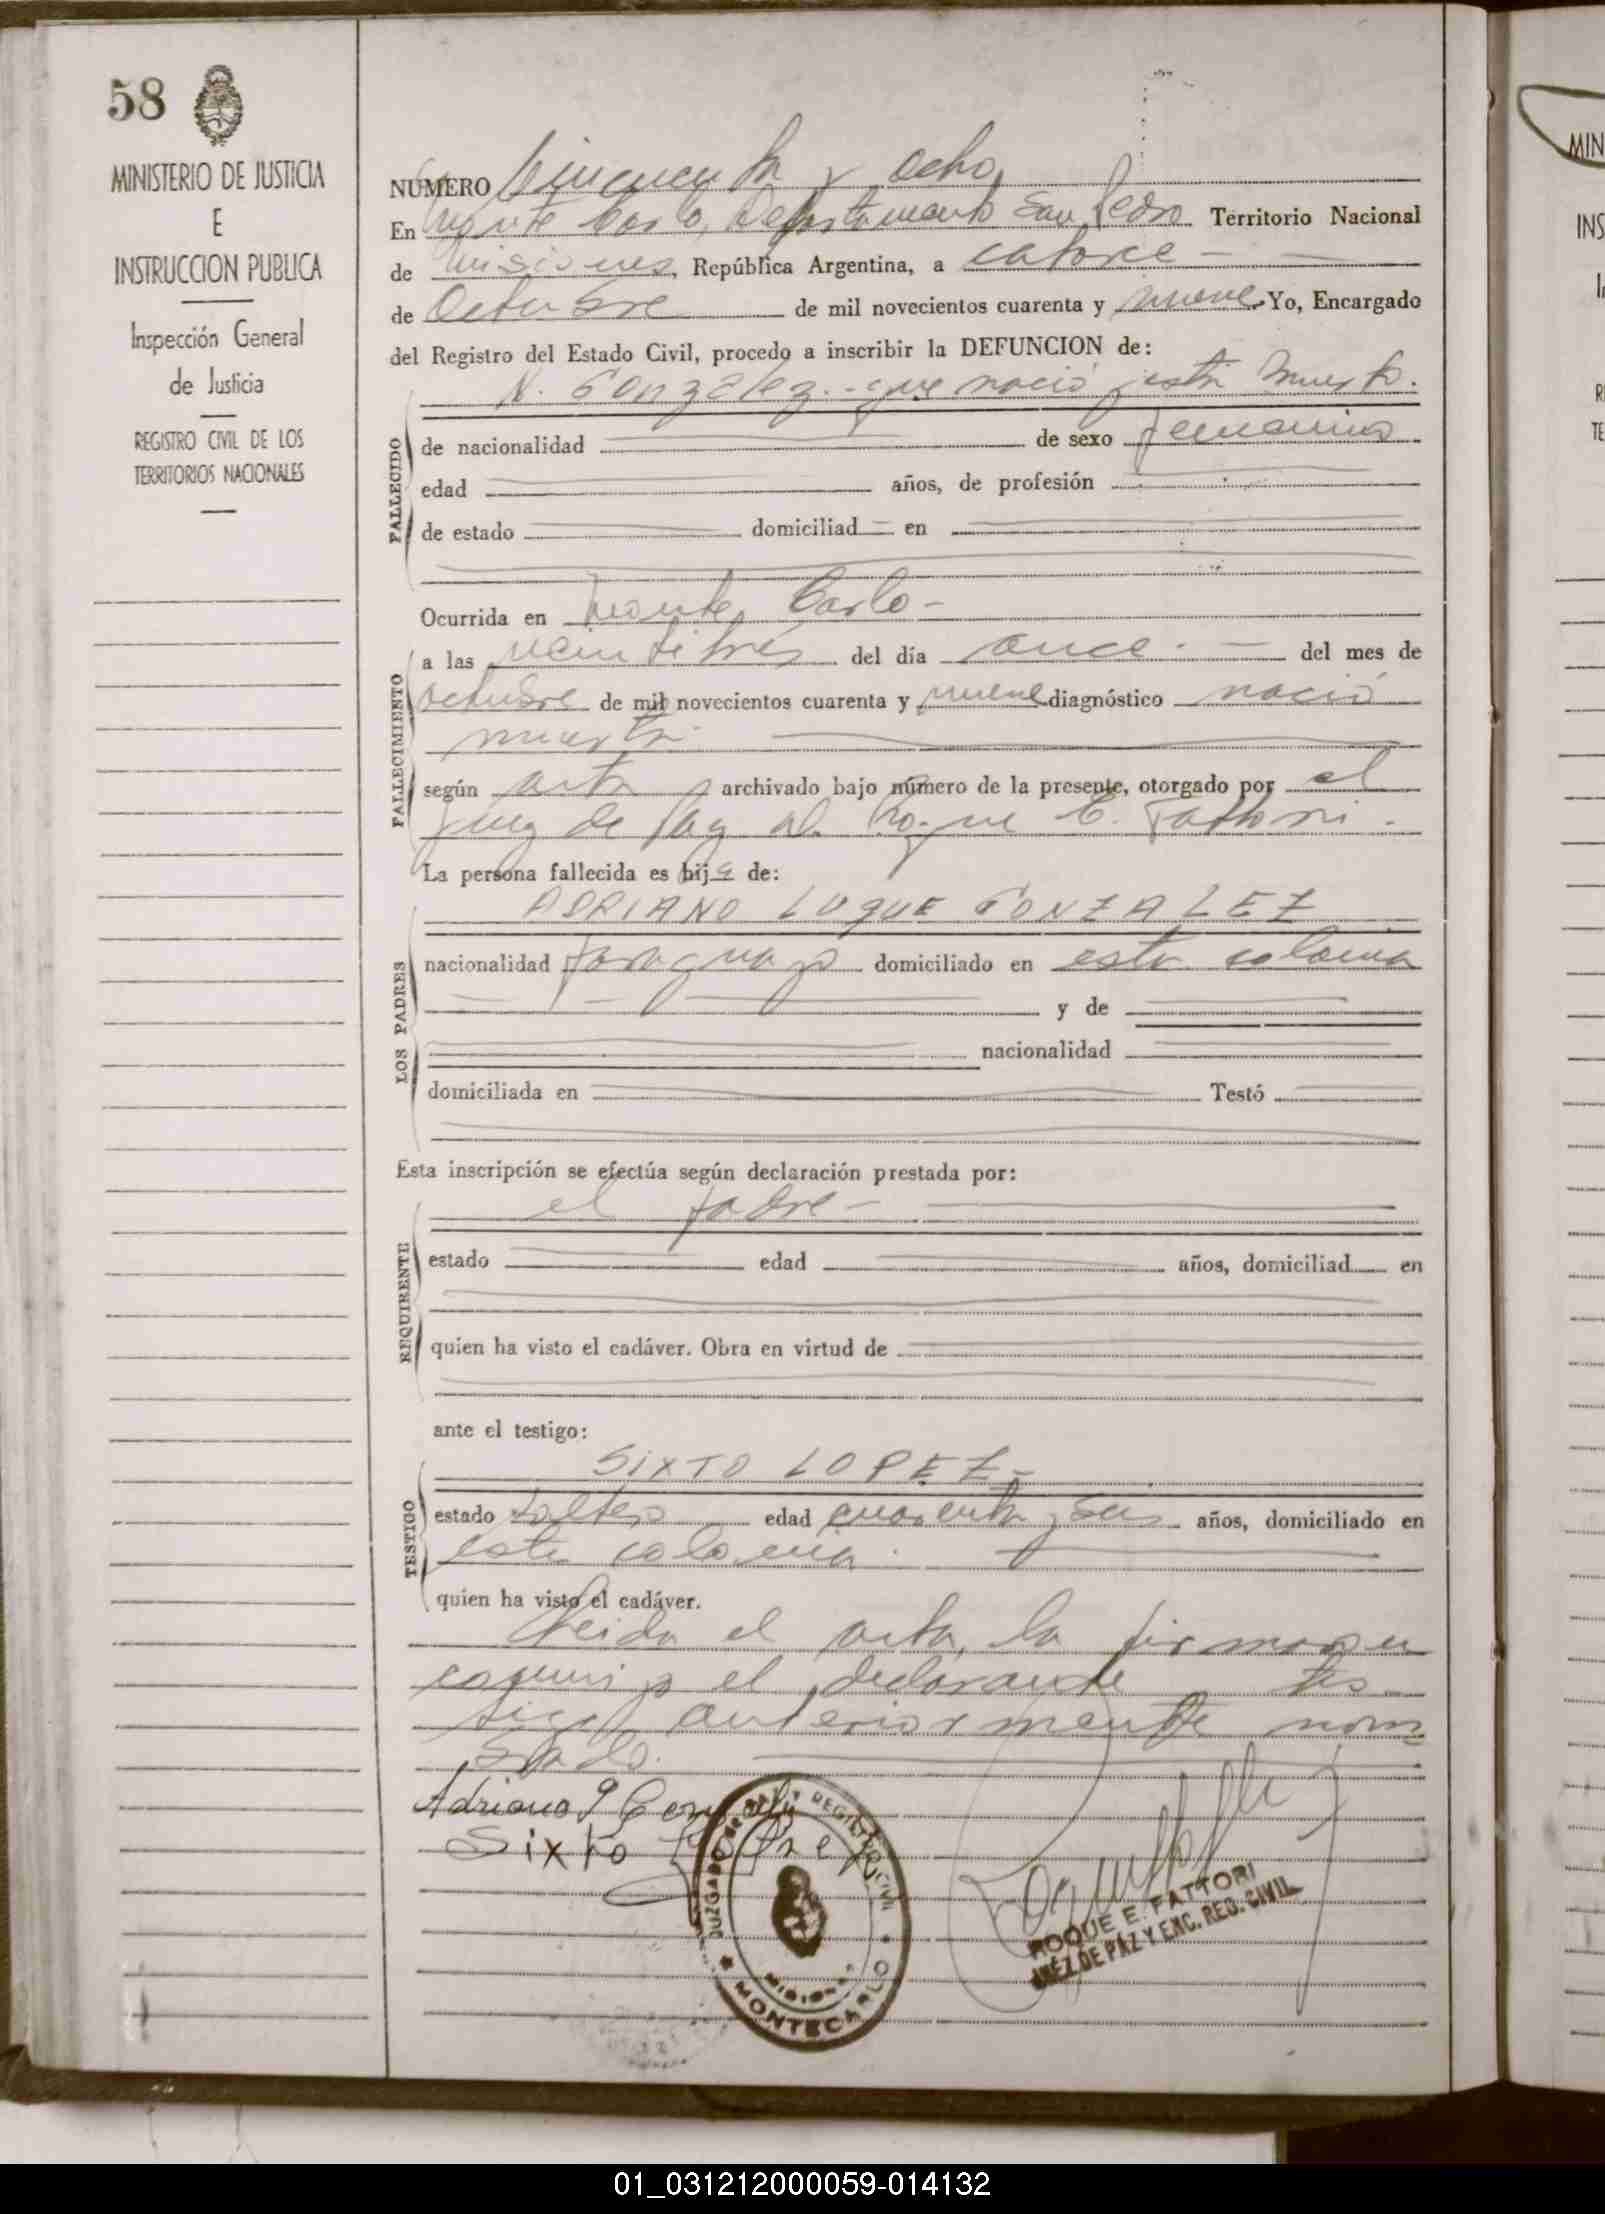 58
MINISTERIO DE JUSTICIA
E
INSTRUCCION PUBLICA
Inspección General
de Justicia
REGISTRO CIVIL DE LOS
TERRITORIOS NACIONALES
NUMERO Cincuenta y ocho
En Monte Carlo, Departamento San Pedro Territorio Nacional
de Misiones, República Argentina, a catorce
de Octubre de mil novecientos cuarenta y nueve Yo, Encargado
del Registro del Estado Civil, procedo a inscribir la DEFUNCION de:
N. Gonzalez.- que nació muerta.
FALLECIDO
de nacionalidad de sexo femenino
edad años, de profesión
de estado domiciliad en
FALLECIMIENTO
Ocurrida en Monte Carlo-
a las veintitrés del día once.- del mes de
octubre de mil novecientos cuarenta y nueve diagnóstico nació
muerta
según acta archivado bajo número de la presente, otorgado por el
Juez de Paz Roque E. Fattori.
La persona fallecida es hija de:
LOS PADRES
ADRIANO LUQUE GONZALEZ
nacionalidad paraguayo domiciliado en esta colonia
y de
nacionalidad
domiciliada en Testó
Esta inscripción se efectúa según declaración prestada por:
REQUIRENTE
el padre-
estado edad años, domiciliad en
quien ha visto el cadáver. Obra en virtud de
ante el testigo:
TESTIGO
SIXTO LOPEZ-
estado soltero edad cuarenta y seis años, domiciliado en
esta colonia.
quien ha visto el cadáver.
Leida el acta, la firmaron
conmigo el declarante tes-
tigo anteriormente nom
brado.
Adriano Gonzalez
Sixto Lopez
JUZGADO DE PAZ Y REGISTRO CIVIL
MISIONES
MONTECARLO
ROQUE E. FATTORI
JUEZ DE PAZ Y ENC. REG. CIVIL
MIN
INS
TE
01_031212000059-014132